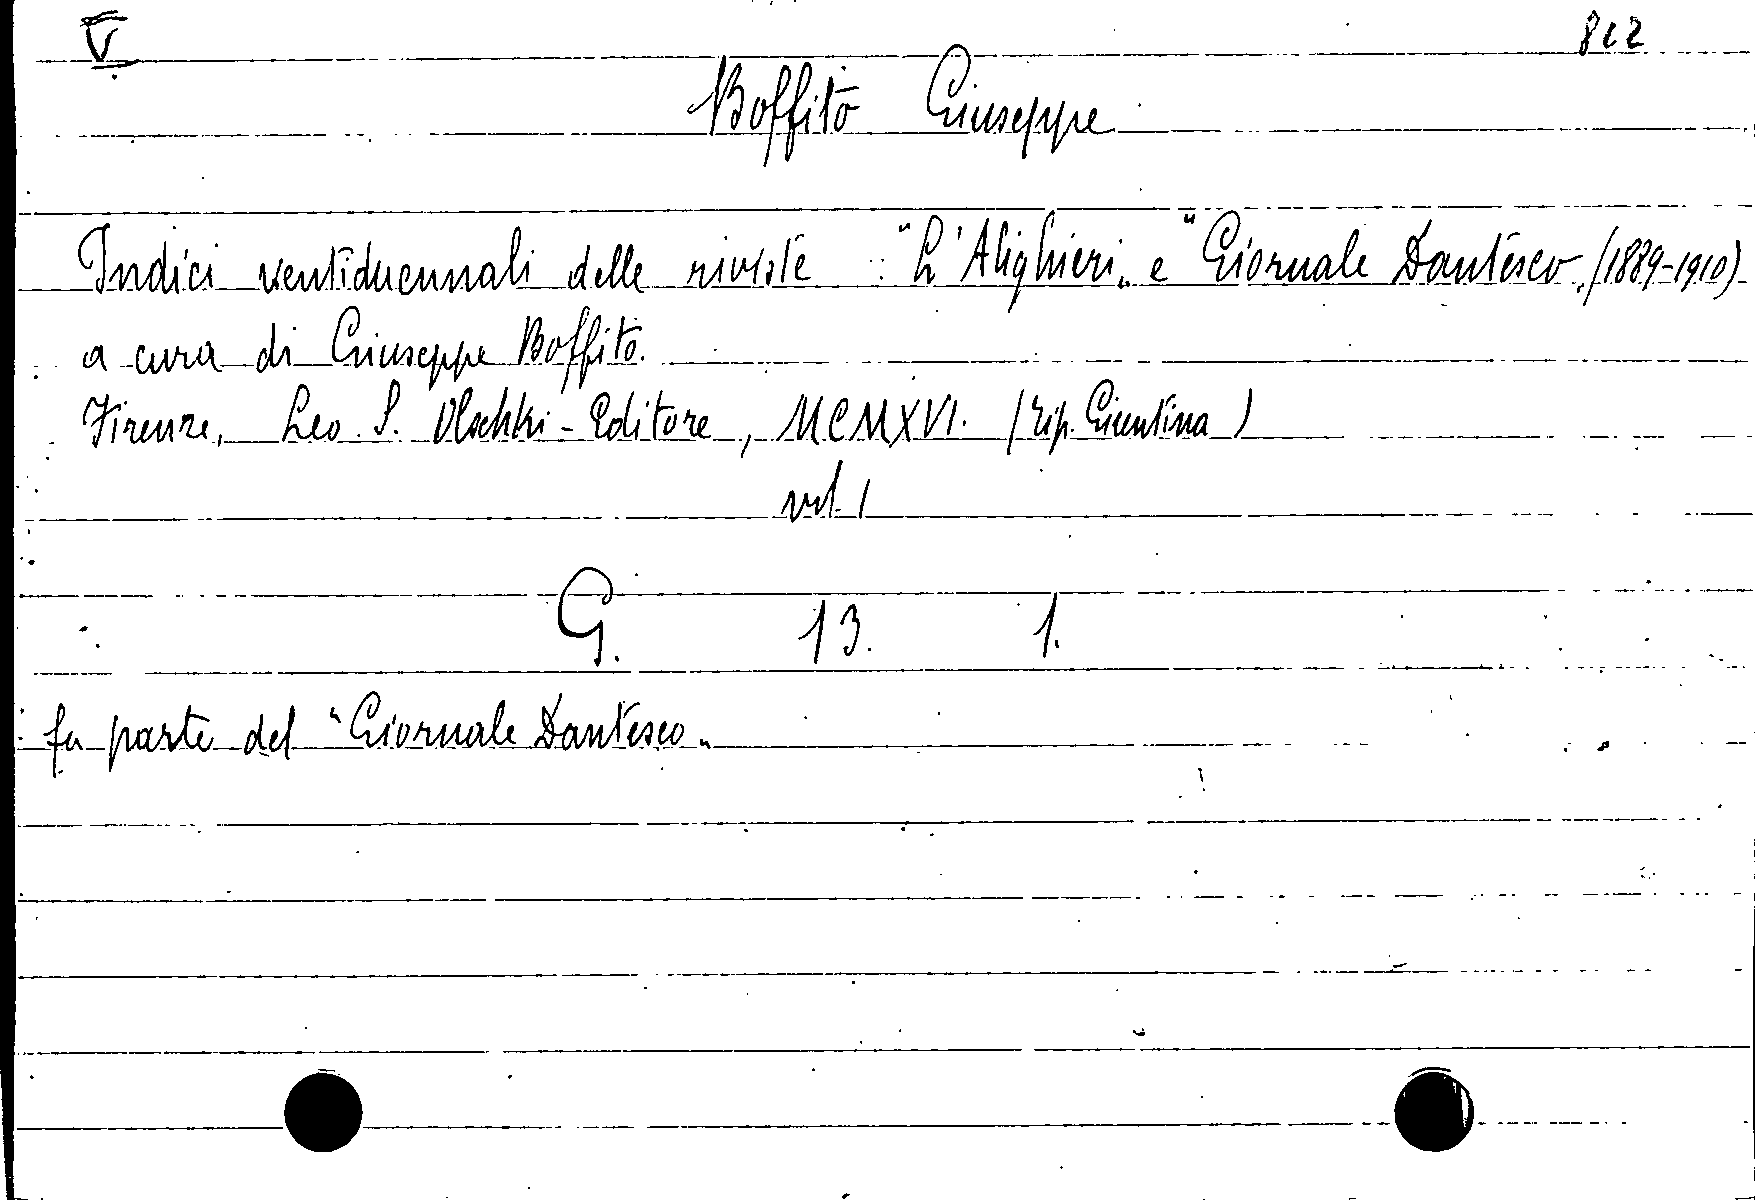 V 812
Boffito Giuseppe
Indici ventiduennali delle riviste : "L'Alighieri" e "Giornale Dantesco" (1889-1910)
a cura di Giuseppe Boffito.
Firenze, Leo. S. Olschki - Editore, MCMXVI. (Tip. Giuntina)
vol. 1
G. 13. 1.
fa parte del "Giornale Dantesco"